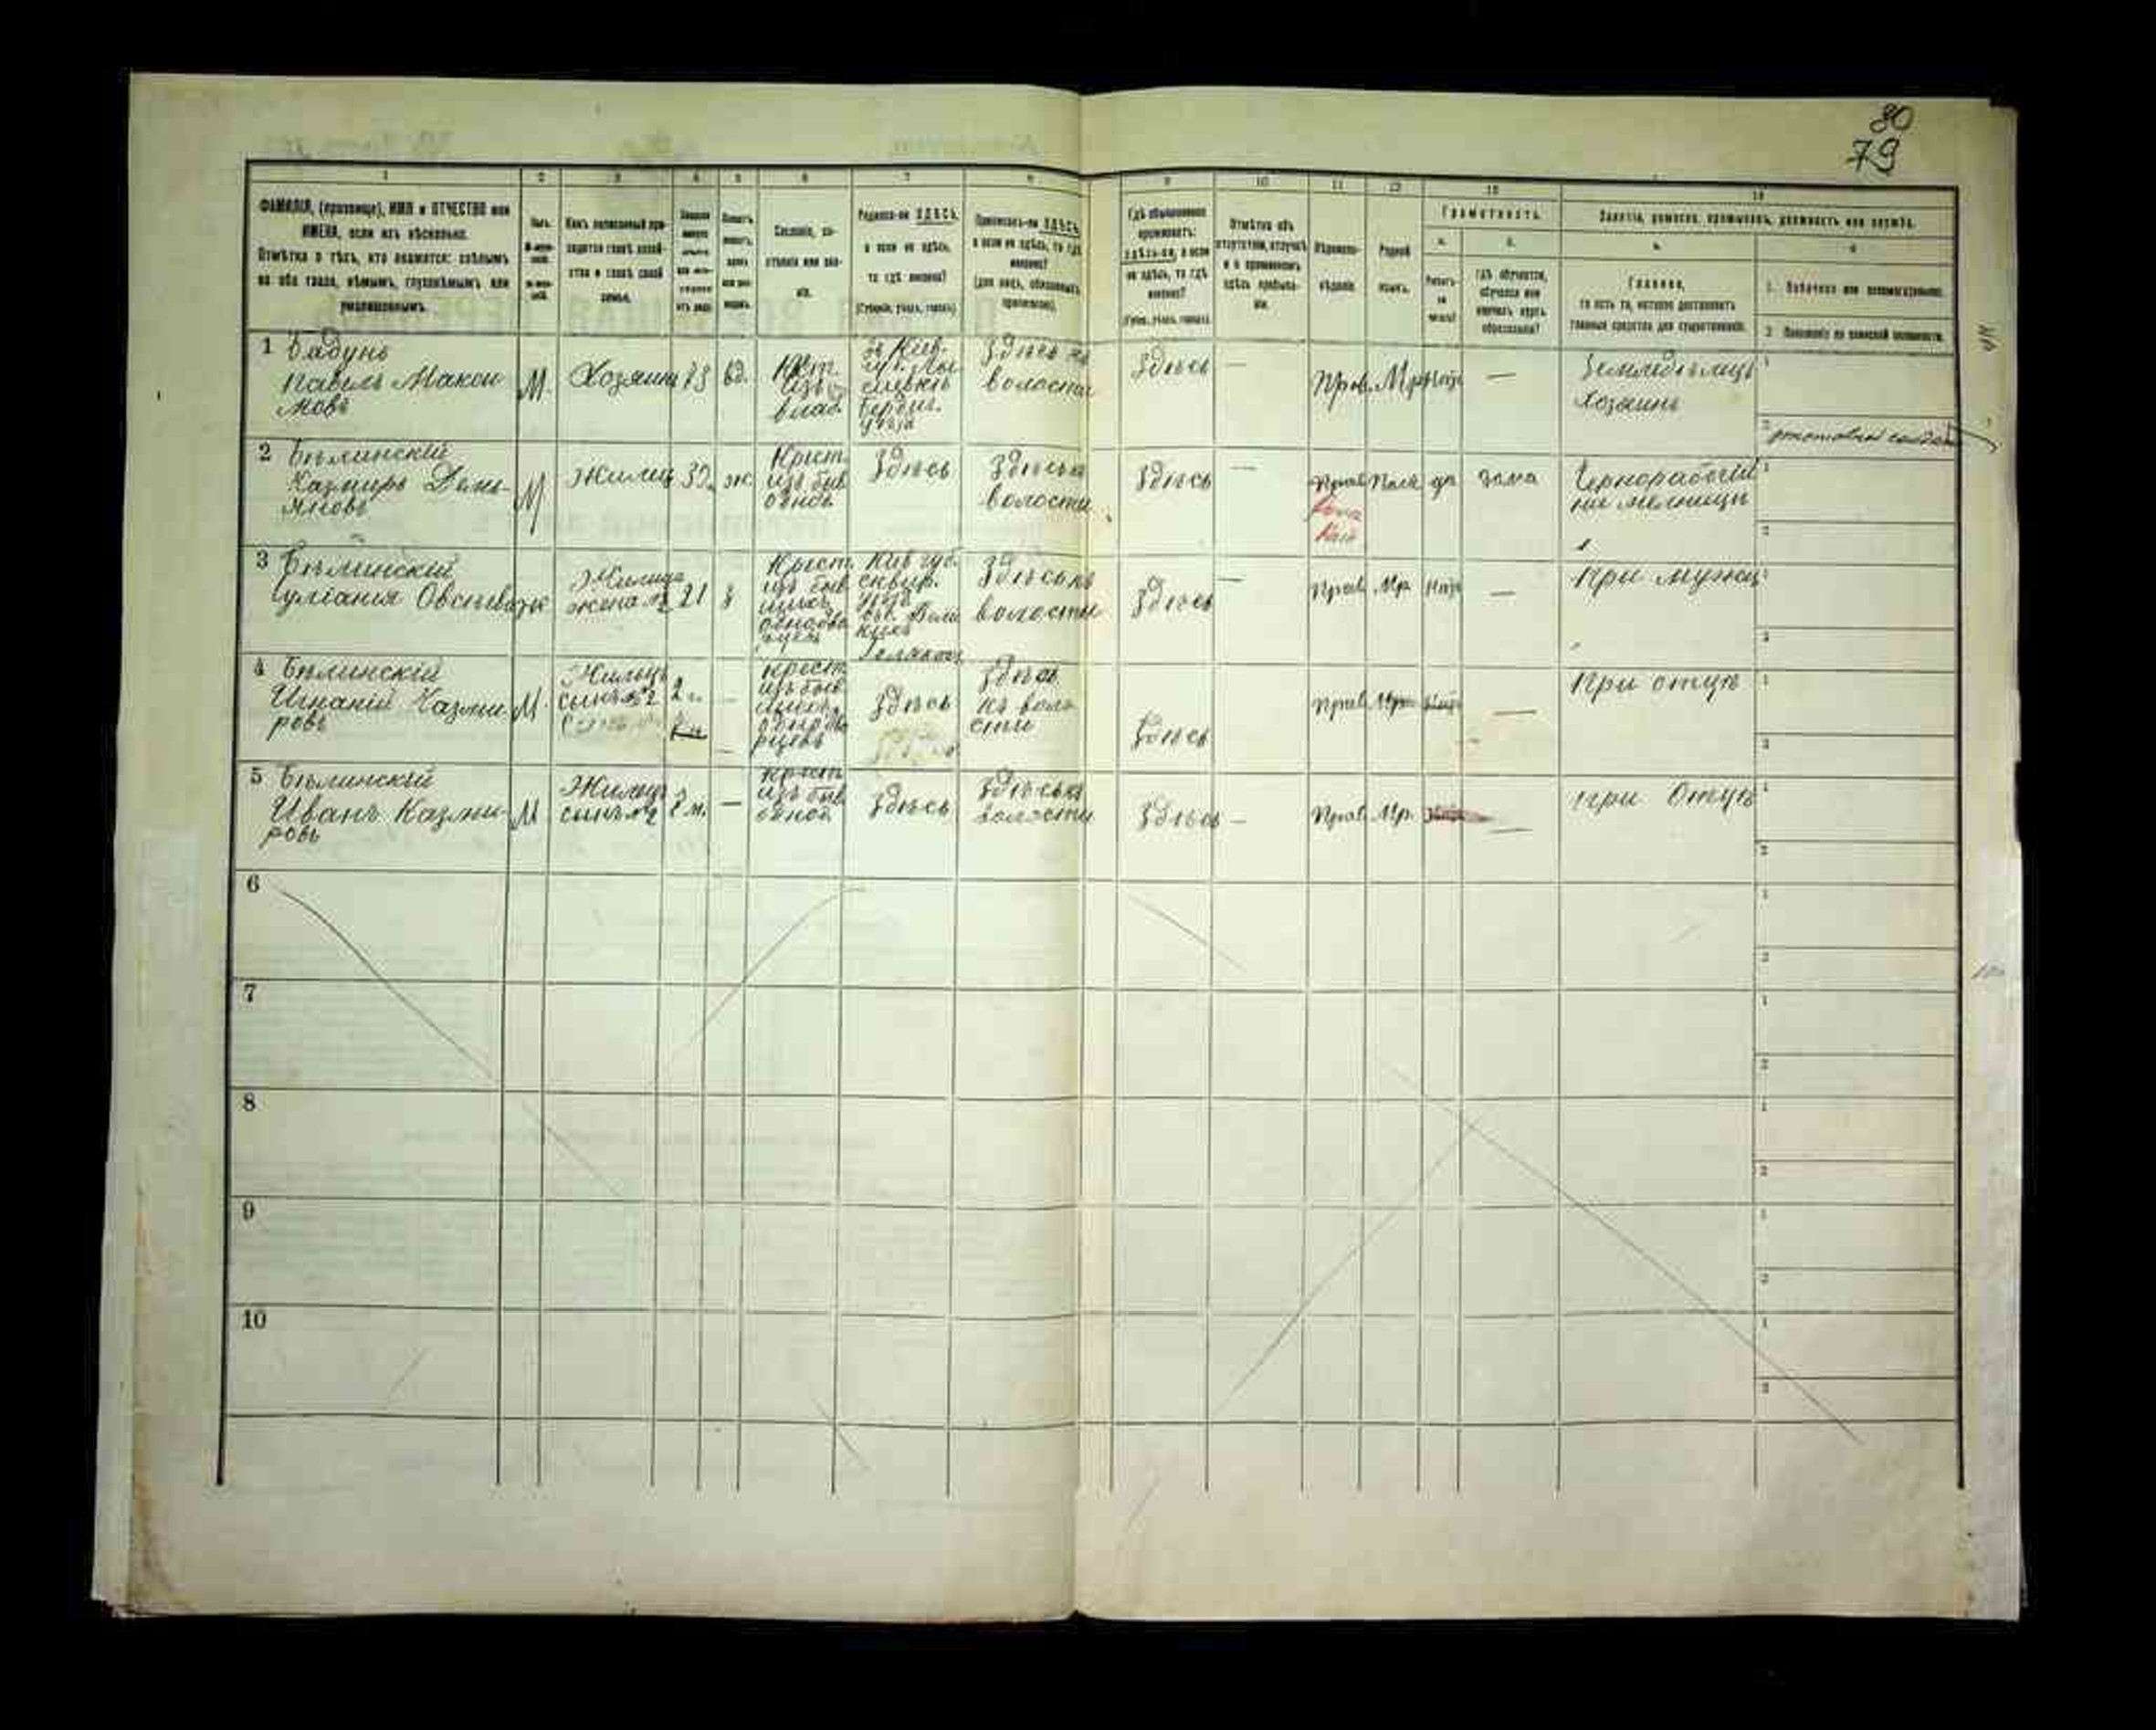 80
79
1 2 3 4 5 6 7 8 9 10 11 12 13 14
ФАМИЛІЯ, (прозвище), ИМЯ и ОТЧЕСТВО или
ИМЕНА, если ихъ нѣсколько.
Отмѣтка о тѣхъ, кто окажется: слѣпымъ
на оба глаза, нѣмымъ, глухонѣмымъ или
умалишеннымъ.
Полъ.
Какъ записанный при-
ходится главѣ хозяй-
ства и главѣ своей
семьи.
Сословіе, со-
стояніе или зва-
ніе.
Родился-ли ЗДѢСЬ,
а если не здѣсь,
то гдѣ именно?
(Губернія, уѣздъ, городъ).
Приписанъ-ли ЗДѢСЬ,
а если не здѣсь, то гдѣ
именно?
(для лицъ, обязанныхъ
припискою).
Гдѣ обыкновенно
проживаетъ:
здѣсь-ли, а если
не здѣсь, то гдѣ
именно?
(Губ., уѣздъ, городъ).
Отмѣтка объ
отсутствіи, отлучкѣ
и о временномъ
здѣсь пребыва-
ніи.
Вѣроиспо-
вѣданіе.
Родной
языкъ.
Грамотность.
а. б.
Гдѣ обучается,
обучался или
кончилъ курсъ
образованія?
Занятіе, ремесло, промыселъ, должность или служба.
а. б.
Главное,
то есть то, которое доставляетъ
главныя средства для существованія.
1. Побочное или вспомогательное.
2. Положеніе по воинской повинности.
1 Бадунъ
Павелъ Макси
мовъ
М.
Хозяинъ
73
вд.
Крст.
изъ
влад.
Бердич.
уѣзда
Здѣсь къ
волости
Здѣсь
—
Прав.
Мр
—
Земледѣлецъ
хозяинъ
1
2
2 Бѣлинскій
Казмиръ Демь-
яновъ
М
Жилец
32
ж.
Крист.
изъ быв
однов.
Здѣсь
Здѣсь къ
волости
Здѣсь
—
Прав
Поль
да
дома
Чернорабочій
на мельницы
1
2
3 Бѣлинскій
Улгания Овсѣева
ж
Жилица
жена №2
21
з
Крист.
изъ быв
шихъ
однодво
рцевъ
Кіев губ.
сквир.
Здѣсь къ
волости
Здѣсь
—
Прав
Мр.
—
При мужѣ
1
2
4 Бѣлинскій
Игнатій Казми-
ровъ
М.
Жилецъ
сынъ №2
2 г.
—
крест.
изъ быв
шихъ
однодво
рцевъ
Здѣсь
Здѣсь
къ воло
сти
Здѣсь
Прав
Мр
—
При отцѣ
1
2
5 Бѣлинскій
Иванъ Казми-
ровъ
М
Жилец
сынъ №2
2 м.
—
крест
изъ быв
однов
Здѣсь
Здѣсь къ
волости
Здѣсь —
Прав
Мр.
—
при Отцѣ
1
2
6
1
2
7
1
2
8
1
2
9
1
2
10
1
2